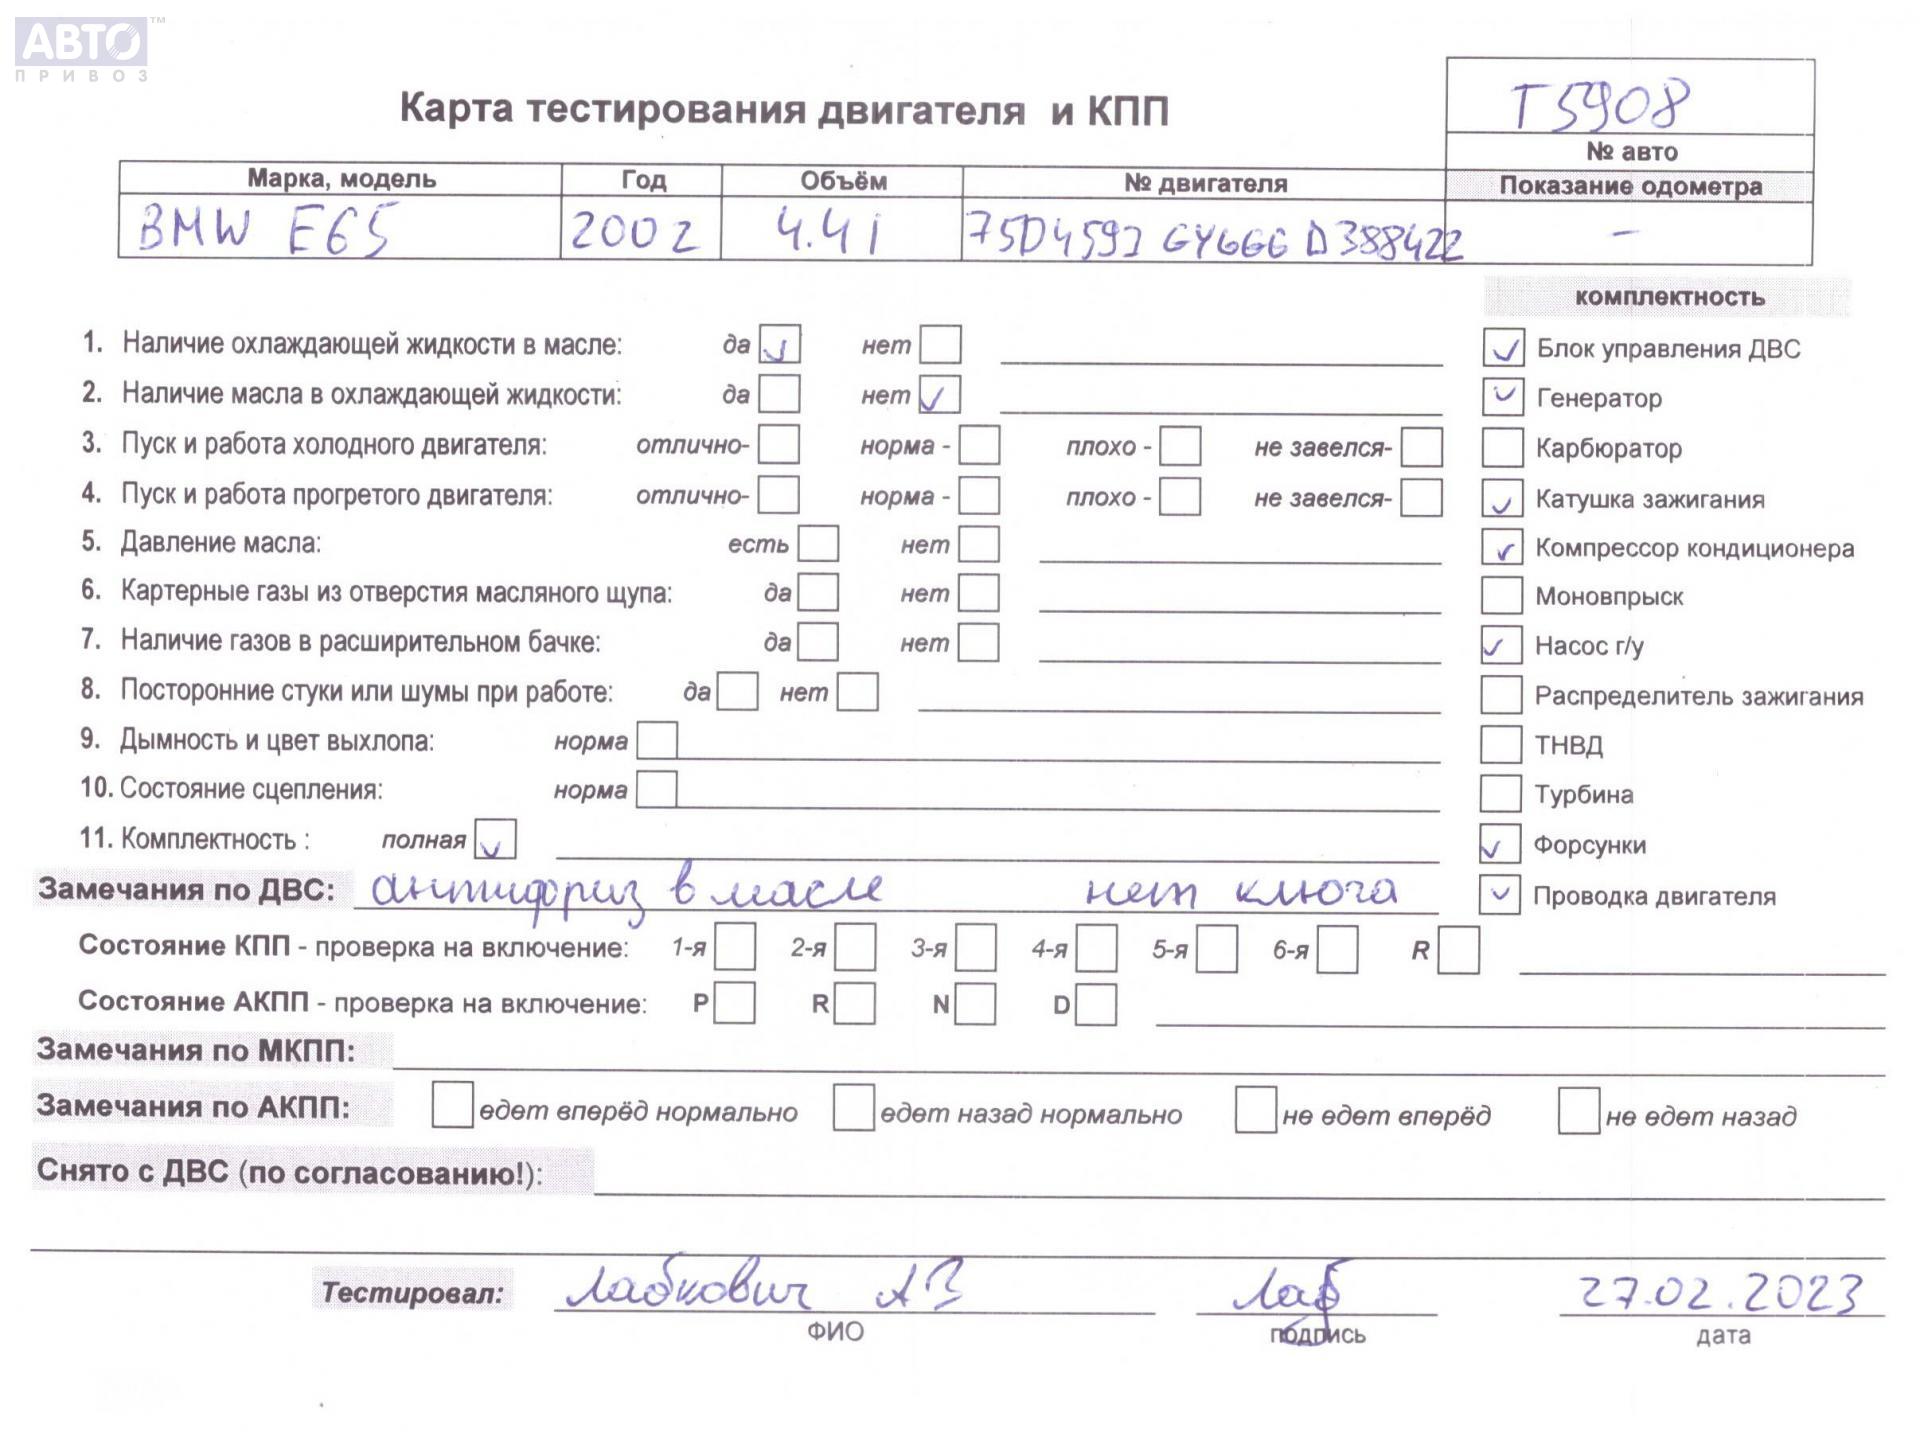 АВТО™
ПРИВОЗ
Карта тестирования двигателя и КПП
T5908
№ авто
Марка, модель Год Объём № двигателя Показание одометра
BMW E65 2002 4.4i D388422 –
комплектность
1. Наличие охлаждающей жидкости в масле: да нет
Блок управления ДВС
2. Наличие масла в охлаждающей жидкости: да нет
Генератор
3. Пуск и работа холодного двигателя: отлично- норма - плохо - не завелся-
Карбюратор
4. Пуск и работа прогретого двигателя: отлично- норма - плохо - не завелся-
Катушка зажигания
5. Давление масла: есть нет
Компрессор кондиционера
6. Картерные газы из отверстия масляного щупа: да нет
Моновпрыск
7. Наличие газов в расширительном бачке: да нет
Насос г/у
8. Посторонние стуки или шумы при работе: да нет
Распределитель зажигания
9. Дымность и цвет выхлопа: норма
ТНВД
10. Состояние сцепления: норма
Турбина
11. Комплектность : полная
Форсунки
Замечания по ДВС: антифриз в масле нет ключа
Проводка двигателя
Состояние КПП - проверка на включение: 1-я 2-я 3-я 4-я 5-я 6-я R
Состояние АКПП - проверка на включение: P R N D
Замечания по МКПП:
Замечания по АКПП: едет вперёд нормально едет назад нормально не едет вперёд не едет назад
Снято с ДВС (по согласованию!):
Тестировал: Лабкович АВ Лаб 27.02.2023
ФИО подпись дата